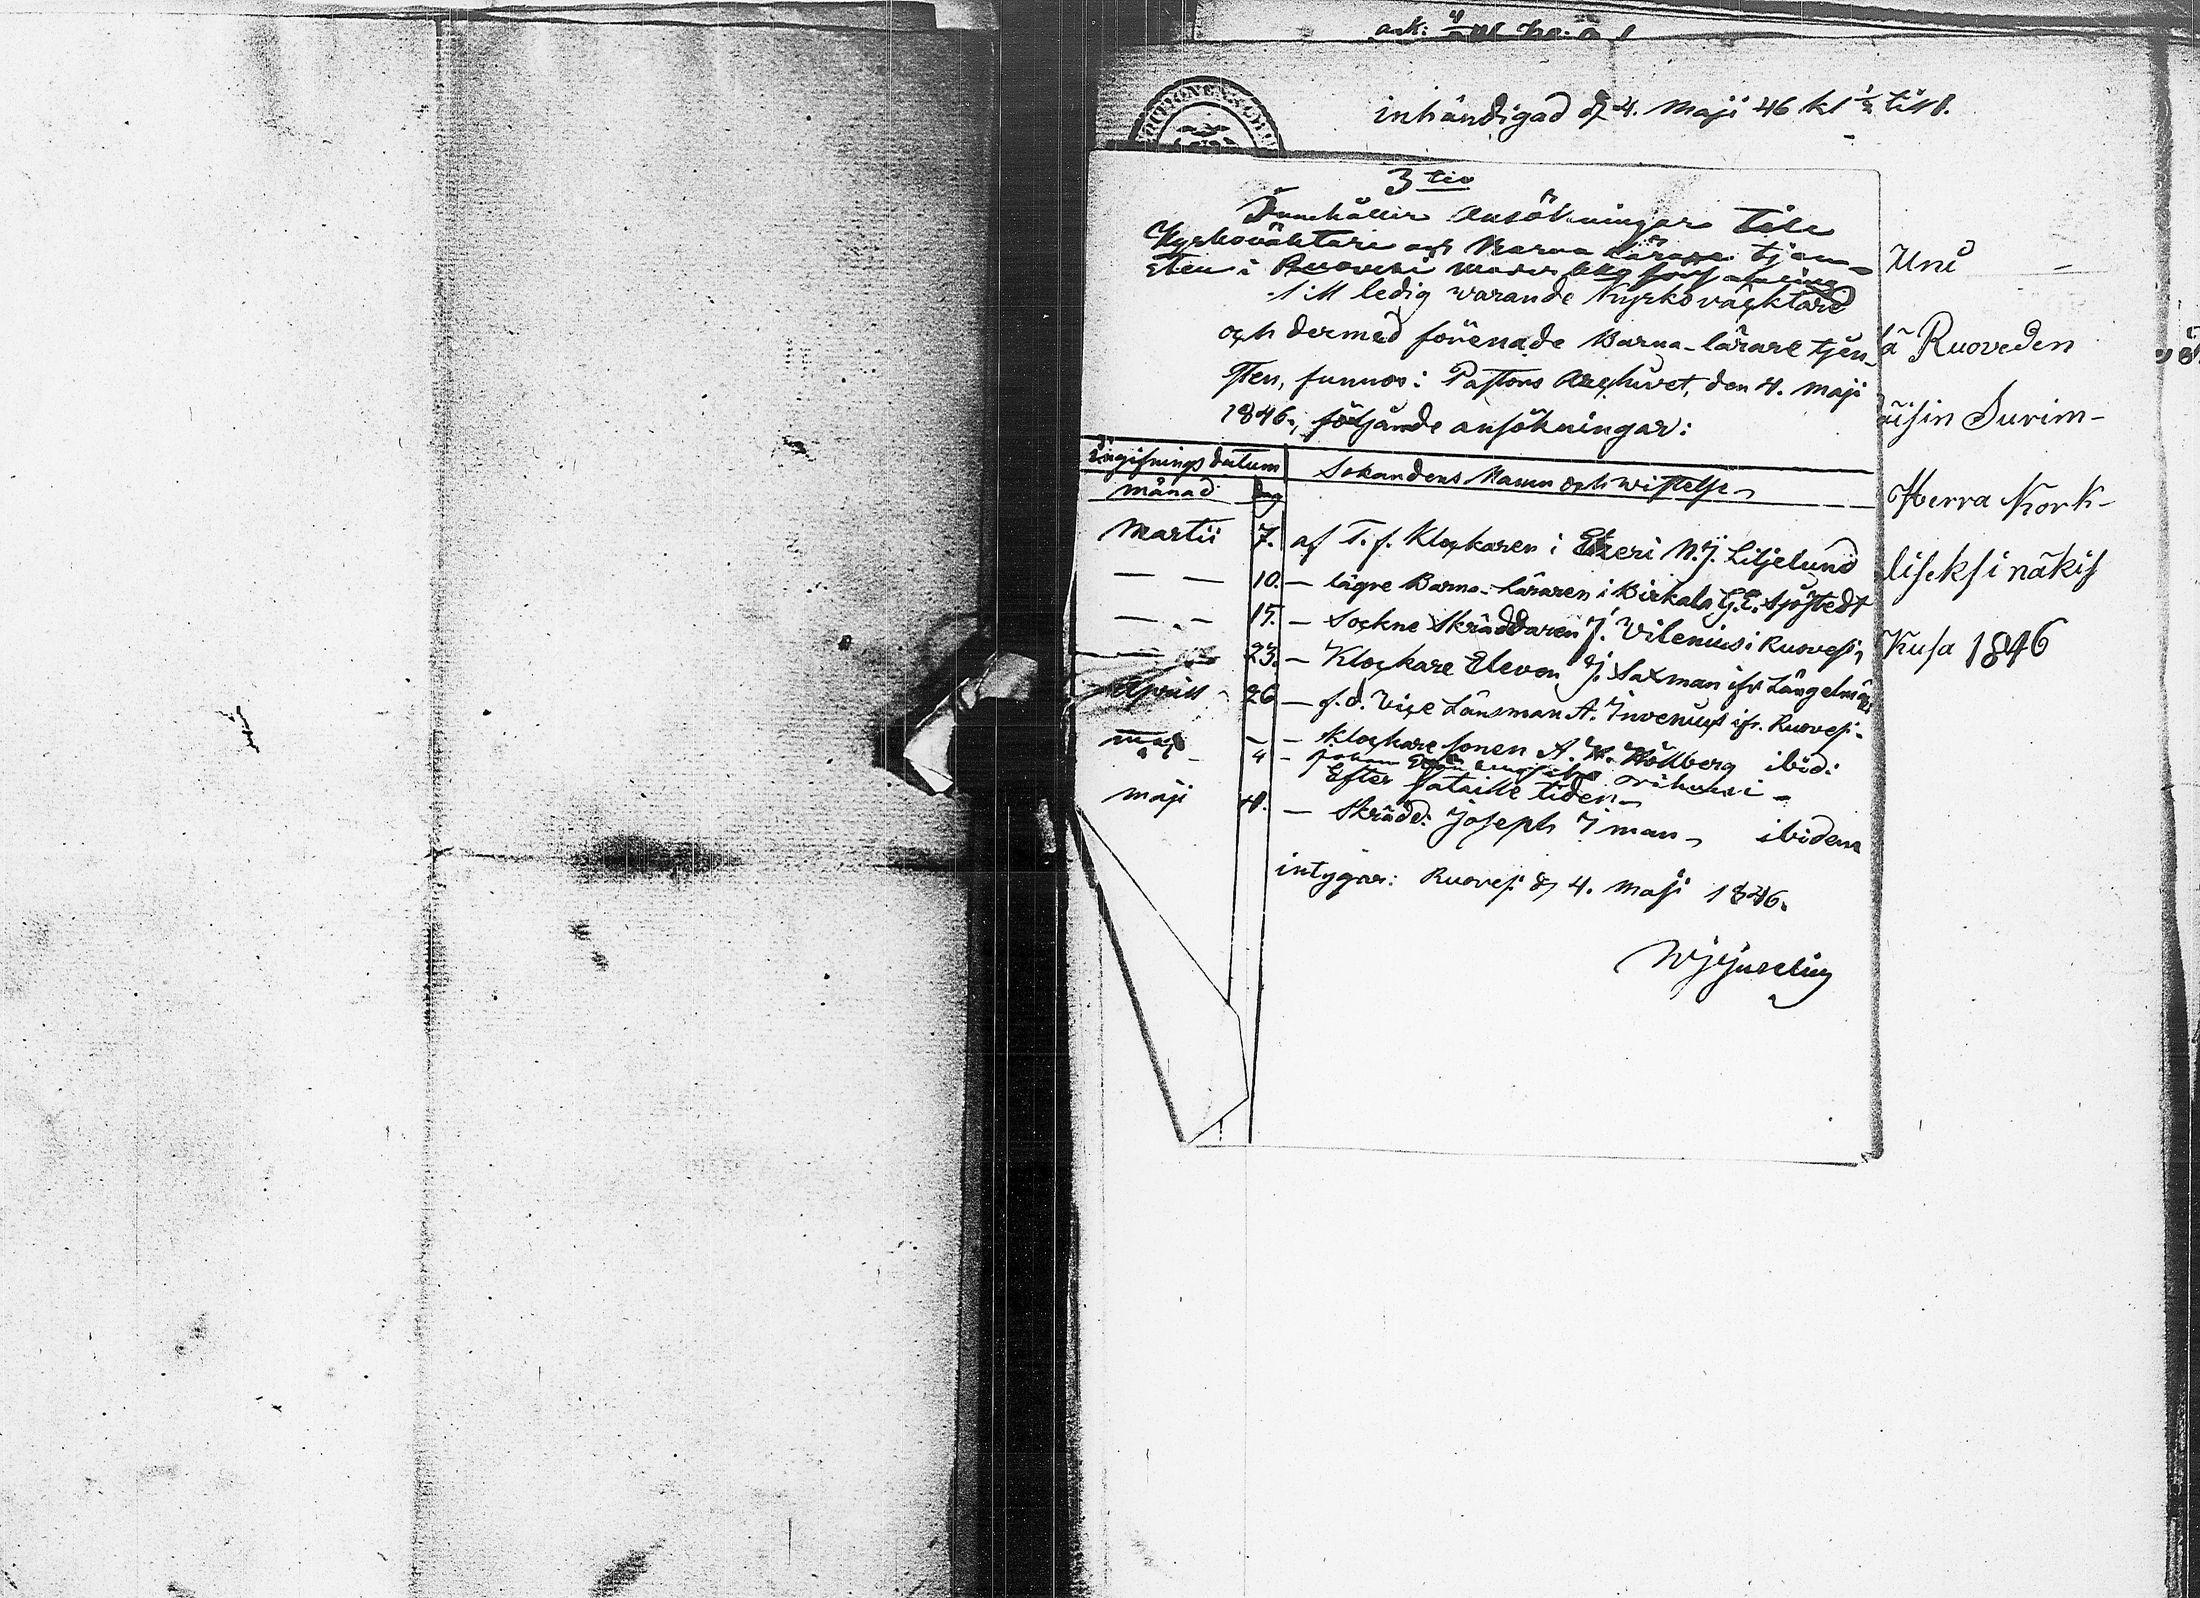 inhändigad d 4. Maji 46 kl ½ till 1.
3tio
Innehåller Ansökningar till
Kyrkoväktare och Barna lärare tjen-
sten i Ruovesi moder
till ledig warande Kyrkováktare
och dermed förenade Barna-lärare tjen-
sten, funnos i Pastors Archivet, den 4. Maji
1846., följande ansökningar:
Ingifnings datum
Sökandens Namn och wistelse
månad dag
Martii 7. af T. f. Klockaren i Etzeri N. J. Liljelund
— — 10. — lägre Barna-läraren i Birkala G. E. Sjöstedt
— — 15. — Sockne Skräddaren J. Vilenius i Ruovesi
— — 23. — Klockare Eleven J. Saxman ifr Längelmäki
April 26 — f. d. Vice Länsman A. Invenius ifr. Ruovesi
— — Klockare sonen A. W. Hällberg ibid:
Maji 4 — Johan
Efter fataille tiden
Maji 4. — Skrädd: Joseph Iman ibidem
intygar: Ruovesi d 4. Maji 1846.
Uni
ä Ruoveden
äisin Surim-
Herra Kork-
liseksi näkis
Kusa 1846